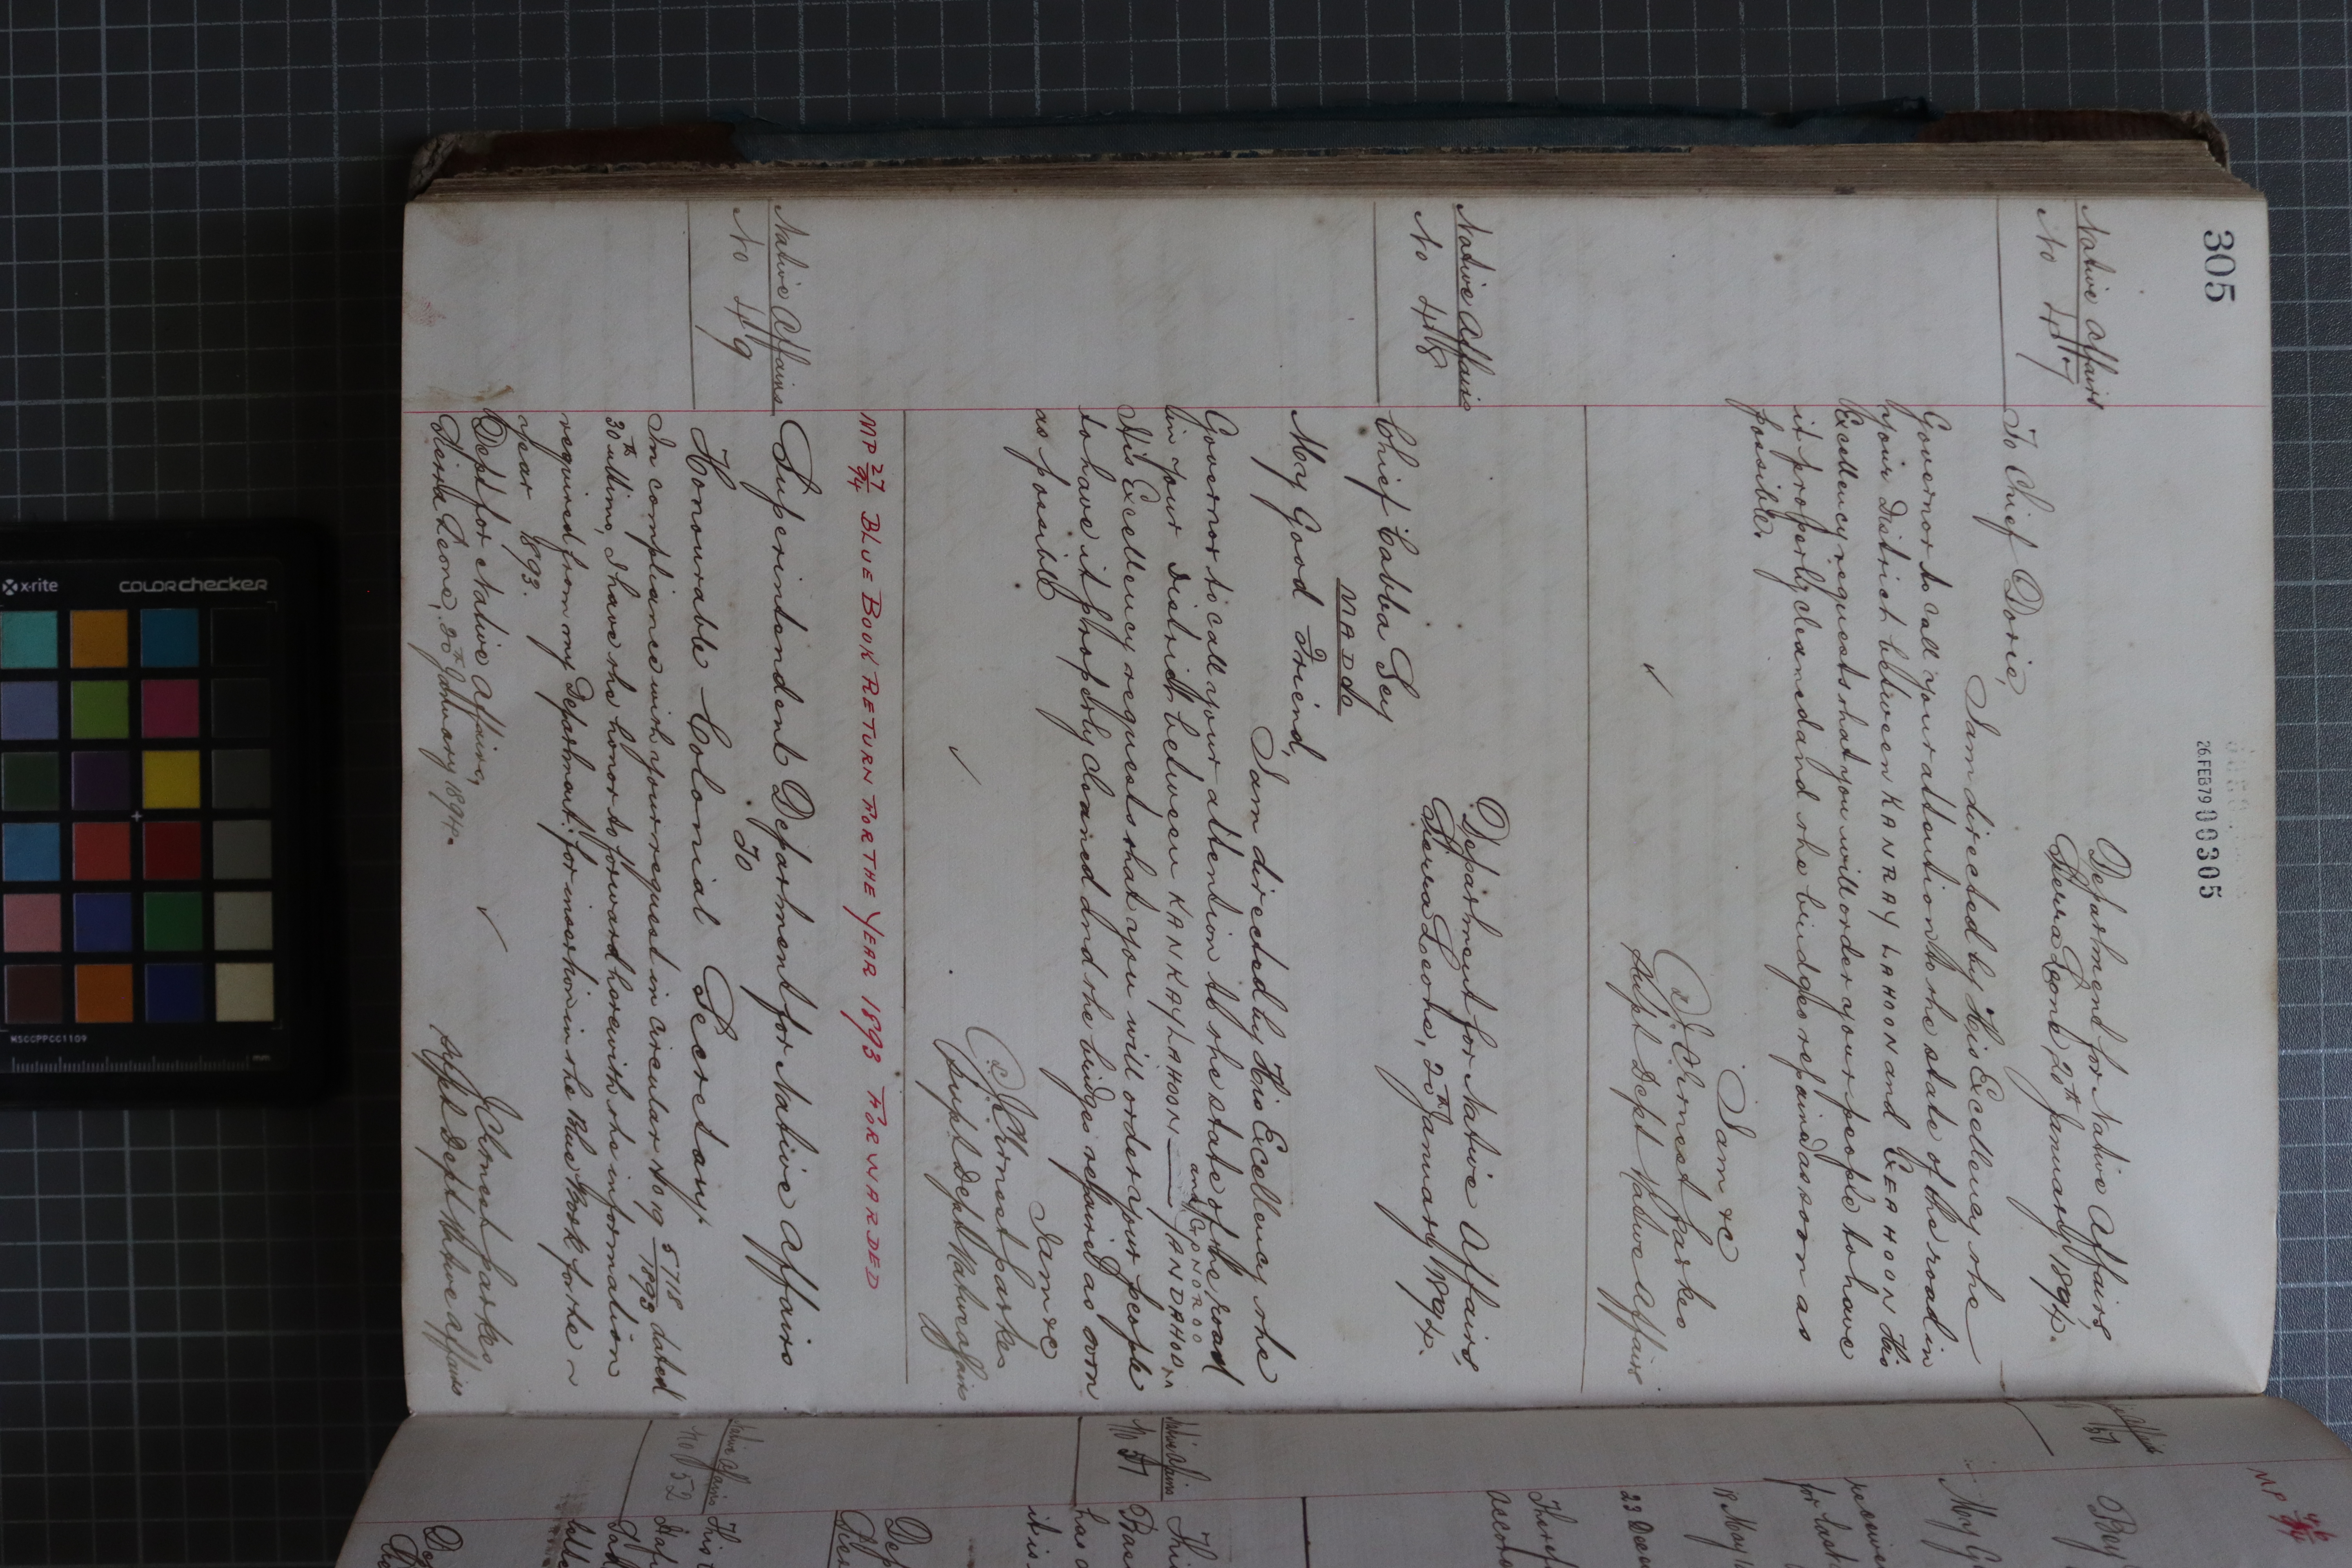 305
26 FEB 79 00305
Native Affairs
No 47
Department for Native Affairs,
Sierra Leone, 20th January 1894.
To Chief Dorie,
I am directed by His Excellency the
Governor to call your attention to the state of the road in
your District between KANRAY LAHOON and GEAHOON His
Excellency requests that you will order your people to have
it properly cleaned and the bridges repaired as soon as
possible.
I am &c
J. C. Ernest Parkes
Supt Dept Native Affairs
Native Affairs
No 48
Department for Native Affairs,
Sierra Leone, 20th January 1894.
Chief Cabba Sey
MADO
My Good Friend,
I am directed by His Excellency the
Governor to call your attention to the state of the road
in your District between KANKAYLAHOON — and YANDAHOO
His Excellency requests that you will order your people
to have it properly cleaned and the bridges repaired as soon
as possible
I am &c
J. C. Ernest Parkes
Supt Dept Native Affairs
MP 27/94 BLUE BOOK RETURN FOR THE YEAR 1893 FORWARDED
Native Affairs
No 49
Superintendent Department for Native Affairs
To
Honourable Colonial Secretary
In compliance with your request in circular No 19 5718/1893 dated
30th ultimo, I have the honor to forward herewith the information
required from my Department for insertion in the Blue Book for the
year 1893.
Dept for Native Affairs,
Sierra Leone, 20th January 1894.
J. C. Ernest Parkes
Supt Dept Native Affairs
MP
50
Bey
My G
received
for last
18 May
23 Dec
There
accor
Native Affairs
No 51
This
has
it is
Dep
Native Affairs
No 52
This